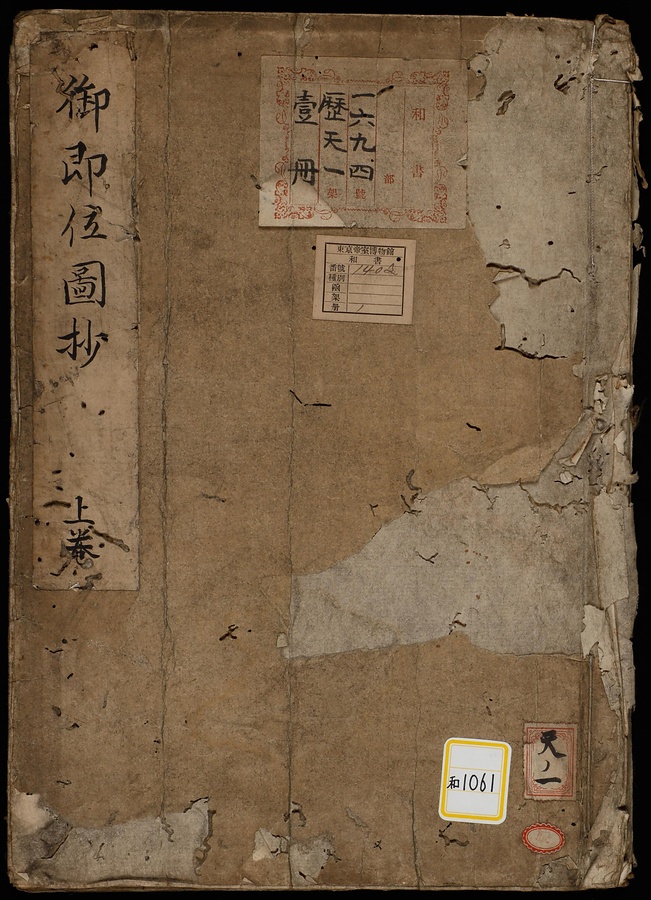 御即位圖抄 上巻
和書
部
一六九四
號
歴天一
架
壹冊
東京帝室博物館
和書
番號
種別
函
架
册 1
天ノ一
和1061